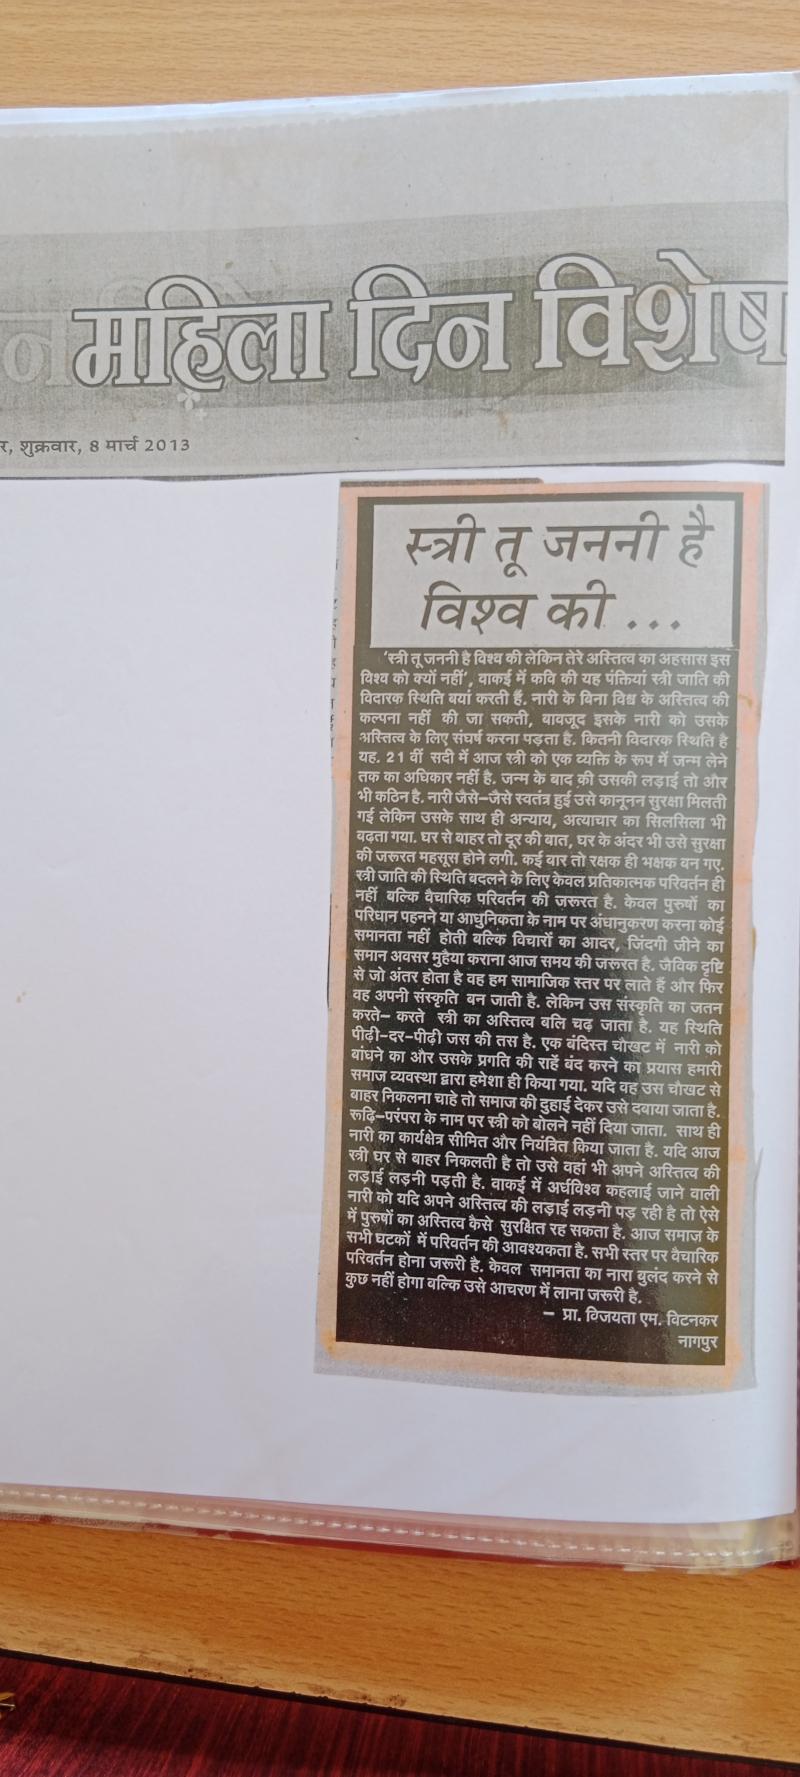 महिला दिन विशेष
र, शुक्रवार, 8 मार्च 2013
स्त्री तू जननी है
विश्व की ...
'स्त्री तू जननी है विश्व की लेकिन तेरे अस्तित्व का अहसास इस
विश्व को क्यों नहीं', वाकई में कवि की यह पंक्तियां स्त्री जाति की
विदारक स्थिति बयां करती हैं. नारी के बिना विश्व के अस्तित्व की
कल्पना नहीं की जा सकती, बावजूद इसके नारी को उसके
अस्तित्व के लिए संघर्ष करना पड़ता है. कितनी विदारक स्थिति है
यह. 21 वीं सदी में आज स्त्री को एक व्यक्ति के रूप में जन्म लेने
तक का अधिकार नहीं है. जन्म के बाद की उसकी लड़ाई तो और
भी कठिन है. नारी जैसे-जैसे स्वतंत्र हुई उसे कानूनन सुरक्षा मिलती
गई लेकिन उसके साथ ही अन्याय, अत्याचार का सिलसिला भी
बढ़ता गया. घर से बाहर तो दूर की बात, घर के अंदर भी उसे सुरक्षा
की जरूरत महसूस होने लगी. कई बार तो रक्षक ही भक्षक बन गए.
स्त्री जाति की स्थिति बदलने के लिए केवल प्रतिकात्मक परिवर्तन ही
नहीं बल्कि वैचारिक परिवर्तन की जरूरत है. केवल पुरुषों का
परिधान पहनने या आधुनिकता के नाम पर अंधानुकरण करना कोई
समानता नहीं होती बल्कि विचारों का आदर, जिंदगी जीने का
समान अवसर मुहैया कराना आज समय की जरूरत है. जैविक दृष्टि
से जो अंतर होता है वह हम सामाजिक स्तर पर लाते हैं और फिर
वह अपनी संस्कृति बन जाती है. लेकिन उस संस्कृति का जतन
करते- करते स्त्री का अस्तित्व बलि चढ़ जाता है. यह स्थिति
पीढ़ी-दर-पीढ़ी जस की तस है. एक बंदिस्त चौखट में नारी को
बांधने का और उसके प्रगति की राहें बंद करने का प्रयास हमारी
समाज व्यवस्था द्वारा हमेशा ही किया गया. यदि वह उस चौखट से
बाहर निकलना चाहे तो समाज की दुहाई देकर उसे दबाया जाता है.
रूढ़ि-परंपरा के नाम पर स्त्री को बोलने नहीं दिया जाता. साथ ही
नारी का कार्यक्षेत्र सीमित और नियंत्रित किया जाता है. यदि आज
स्त्री घर से बाहर निकलती है तो उसे वहां भी अपने अस्तित्व की
लड़ाई लड़नी पड़ती है. वाकई में अर्धविश्व कहलाई जाने वाली
नारी को यदि अपने अस्तित्व की लड़ाई लड़नी पड़ रही है तो ऐसे
में पुरुषों का अस्तित्व कैसे सुरक्षित रह सकता है. आज समाज के
सभी घटकों में परिवर्तन की आवश्यकता है. सभी स्तर पर वैचारिक
परिवर्तन होना जरूरी है. केवल समानता का नारा बुलंद करने से
कुछ नहीं होगा बल्कि उसे आचरण में लाना जरूरी है.
– प्रा. विजयता एम. विटनकर
नागपुर